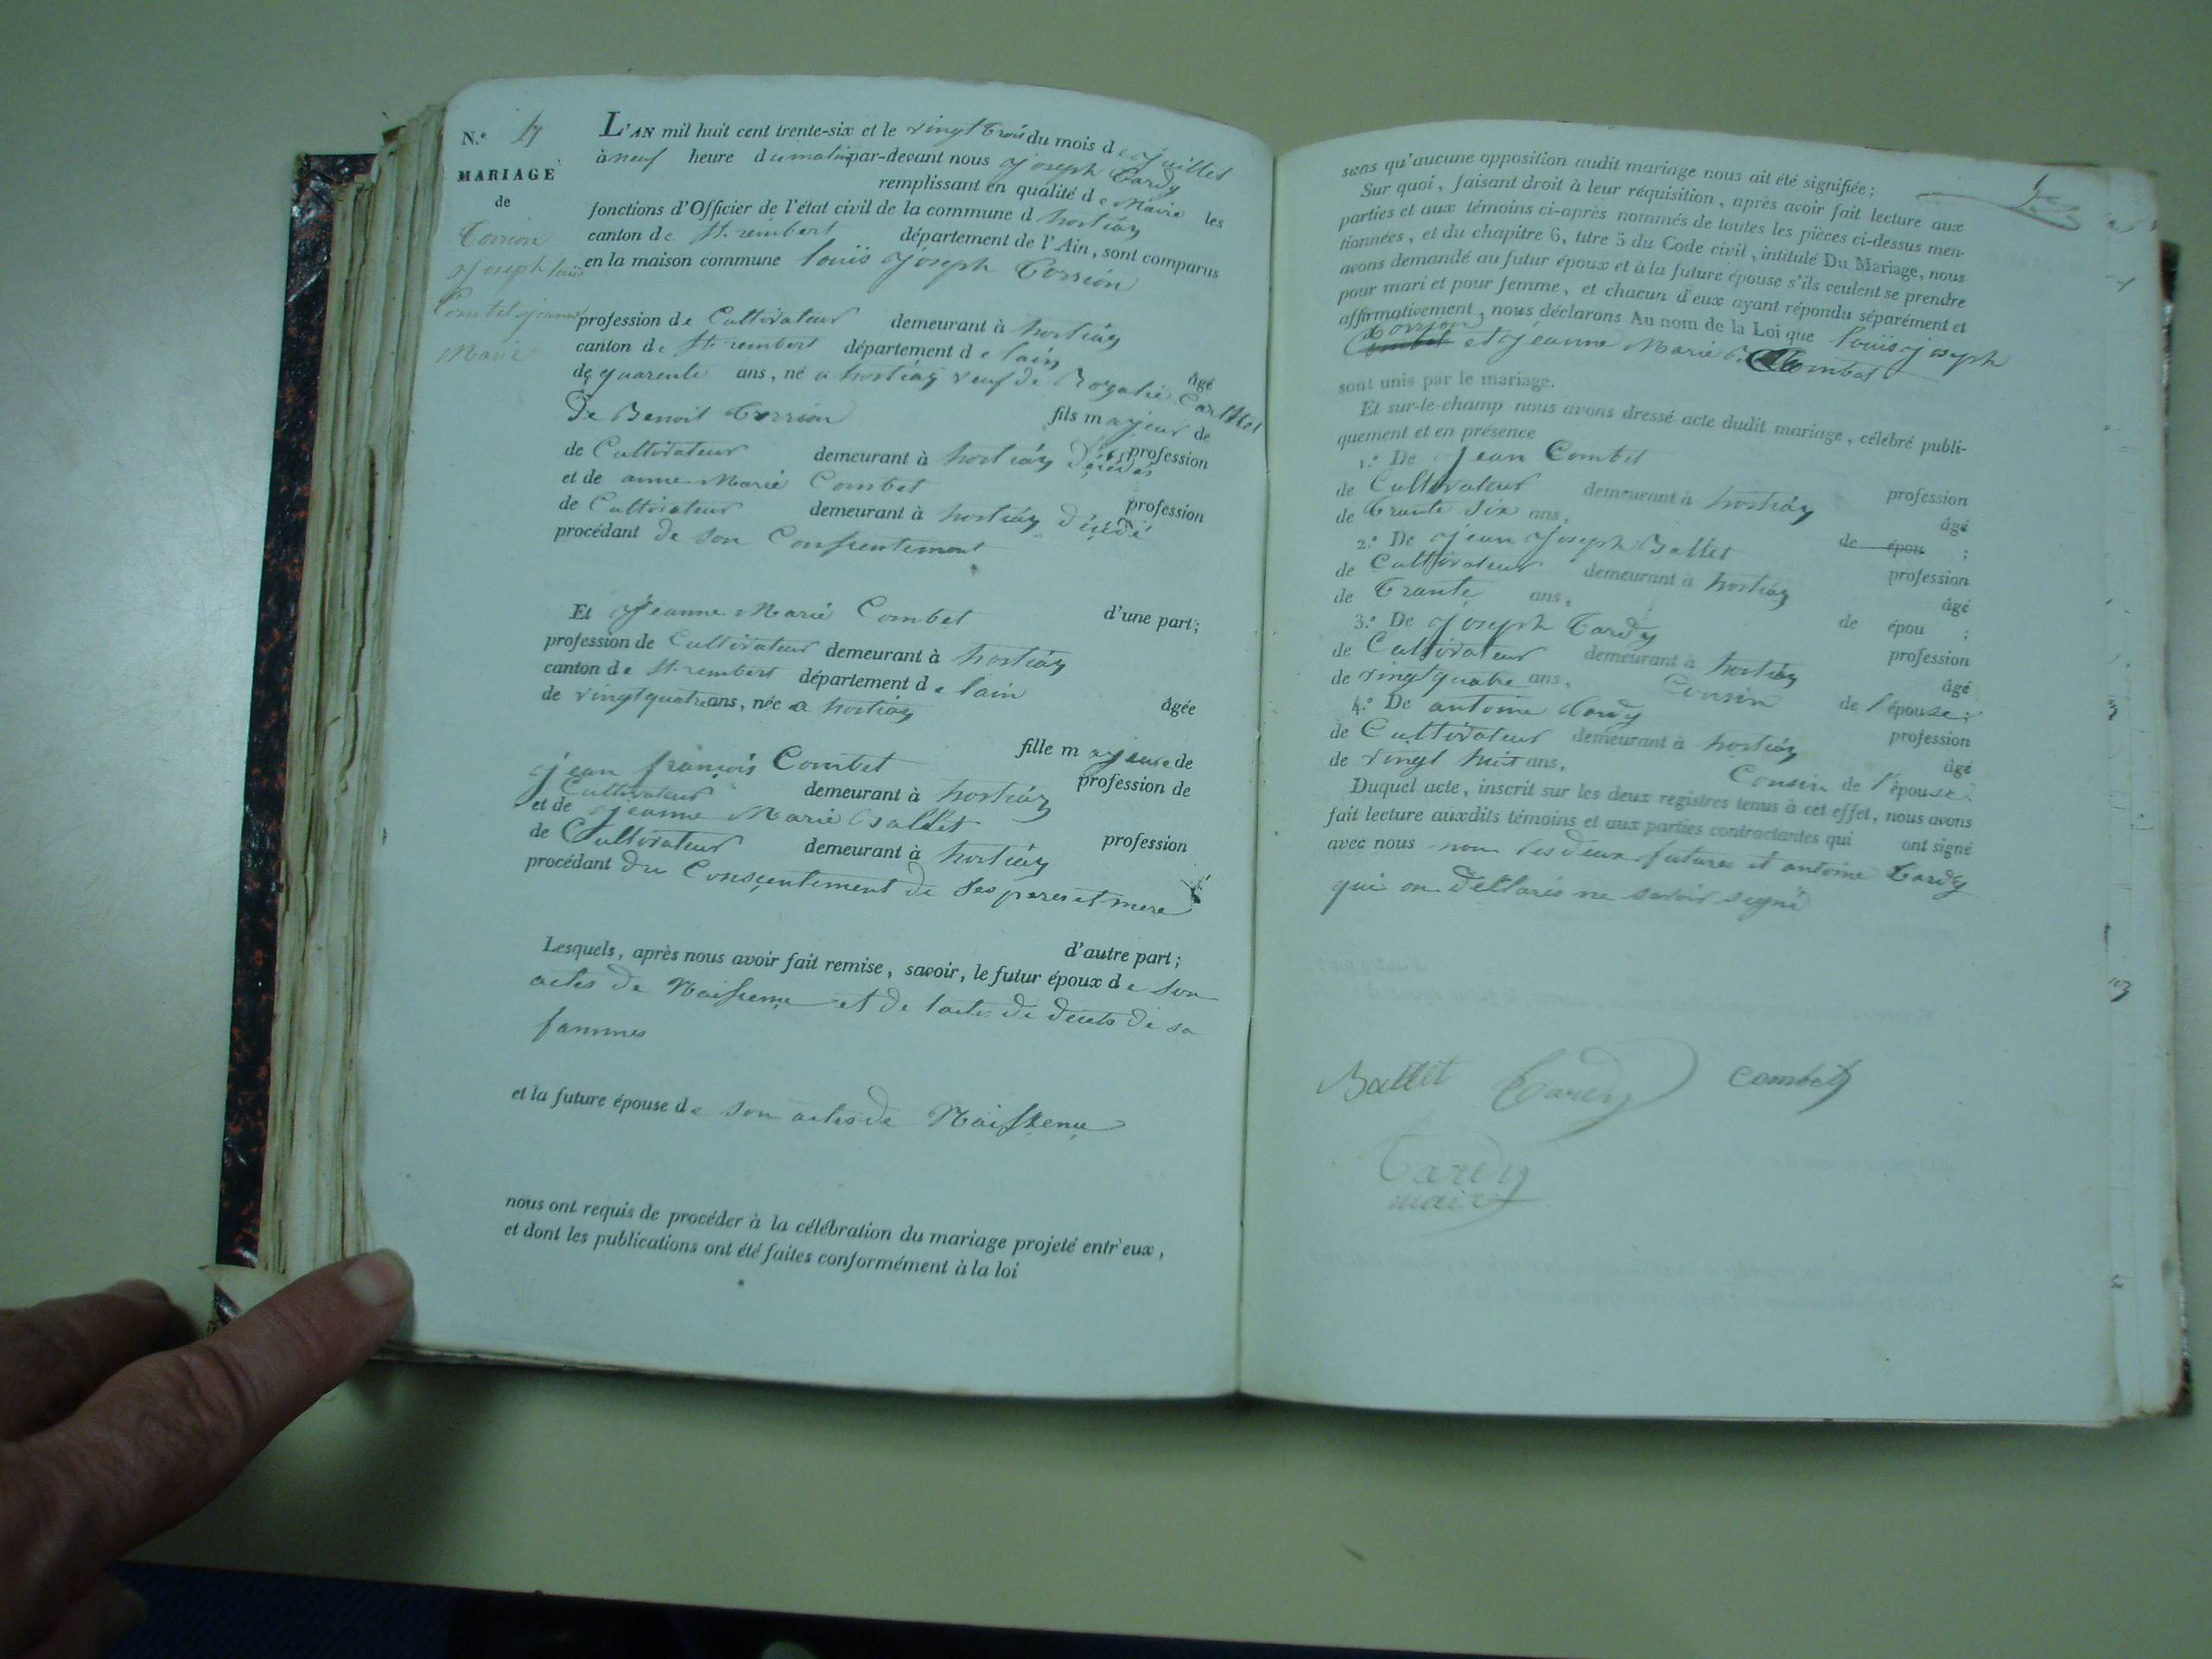 N.º 4
MARIAGE
de
Corrion
joseph louis
Combet jeanne
Marie
L'AN mil huit cent trente-six et le vingt trois du mois de juillet
à neuf heure du matin par-devant nous joseph tardy
remplissant en qualité de Maire les
fonctions d'Officier de l'état civil de la commune d hostiáz
canton de St. rembert département de l'Ain, sont comparus
en la maison commune louis joseph Corrion
profession de Cultivateur demeurant à hostiáz
canton de St. rembert département de lain âgé
de quarente ans, né a hostiáz veuf de Rozalie
fils majeur de
De Benoit Corrion profession
de Cultivateur demeurant à hostiáz décédés
et de anne Marie Combet profession
de Cultivateur demeurant à hostiáz décédé
procédant de son Consentement
d'une part;
Et jeanne Marie Combet
profession de Cultivateur demeurant à hostiáz
canton de St. rembert département de lain âgée
de vingt quatre ans, née a hostiáz
fille majeure de
jean françois Combet profession de
Cultivateur demeurant à hostiáz
et de jeanne Marie Ballet profession
de Cultivateur demeurant à hostiáz
procédant du Consentement de Ses peres et mere
d'autre part;
Lesquels, après nous avoir fait remise, savoir, le futur époux de son
actes de Naissence et de lactes de décets de sa
fammes
et la future épouse de son actes de Naissence
nous ont requis de procéder à la célébration du mariage projeté entr'eux,
et dont les publications ont été faites conformément à la loi
sans qu'aucune opposition audit mariage nous ait été signifiée;
Sur quoi, faisant droit à leur réquisition, après avoir fait lecture aux
parties et aux témoins ci-après nommés de toutes les pièces ci-dessus men-
tionnées, et du chapitre 6, titre 5 du Code civil, intitulé Du Mariage, nous
avons demandé au futur époux et à la future épouse s'ils veulent se prendre
pour mari et pour femme, et chacun d'eux ayant répondu séparément et
affirmativement, nous déclarons Au nom de la Loi que louis joseph
Corrion
Combet et jeanne Marie Combet
sont unis par le mariage.
Et sur-le-champ nous avons dressé acte dudit mariage, célébré publi-
quement et en présence
1.º De Jean Combet profession
de Cultivateur demeurant à hostiáz âgé
de trante six ans, de épou ;
2.º De jean joseph Ballet profession
de Cultivateur demeurant à hostiáz âgé
de trante ans, de épou ;
3.º De joseph tardy profession
de Cultivateur demeurant à hostiáz âgé
de vingt quatre ans, Cousin de l'épouse;
4.º De antoine tardy profession
de Cultivateur demeurant à hostiáz âgé
de vingt huit ans, Cousin de l'épouse.
Duquel acte, inscrit sur les deux registres tenus à cet effet, nous avons
fait lecture auxdits témoins et aux parties contractantes qui ont signé
avec nous non les deux futures et antoine tardy
qui on déllarés ne savoir signé
Ballet Tardy Combet
Tardy
maire